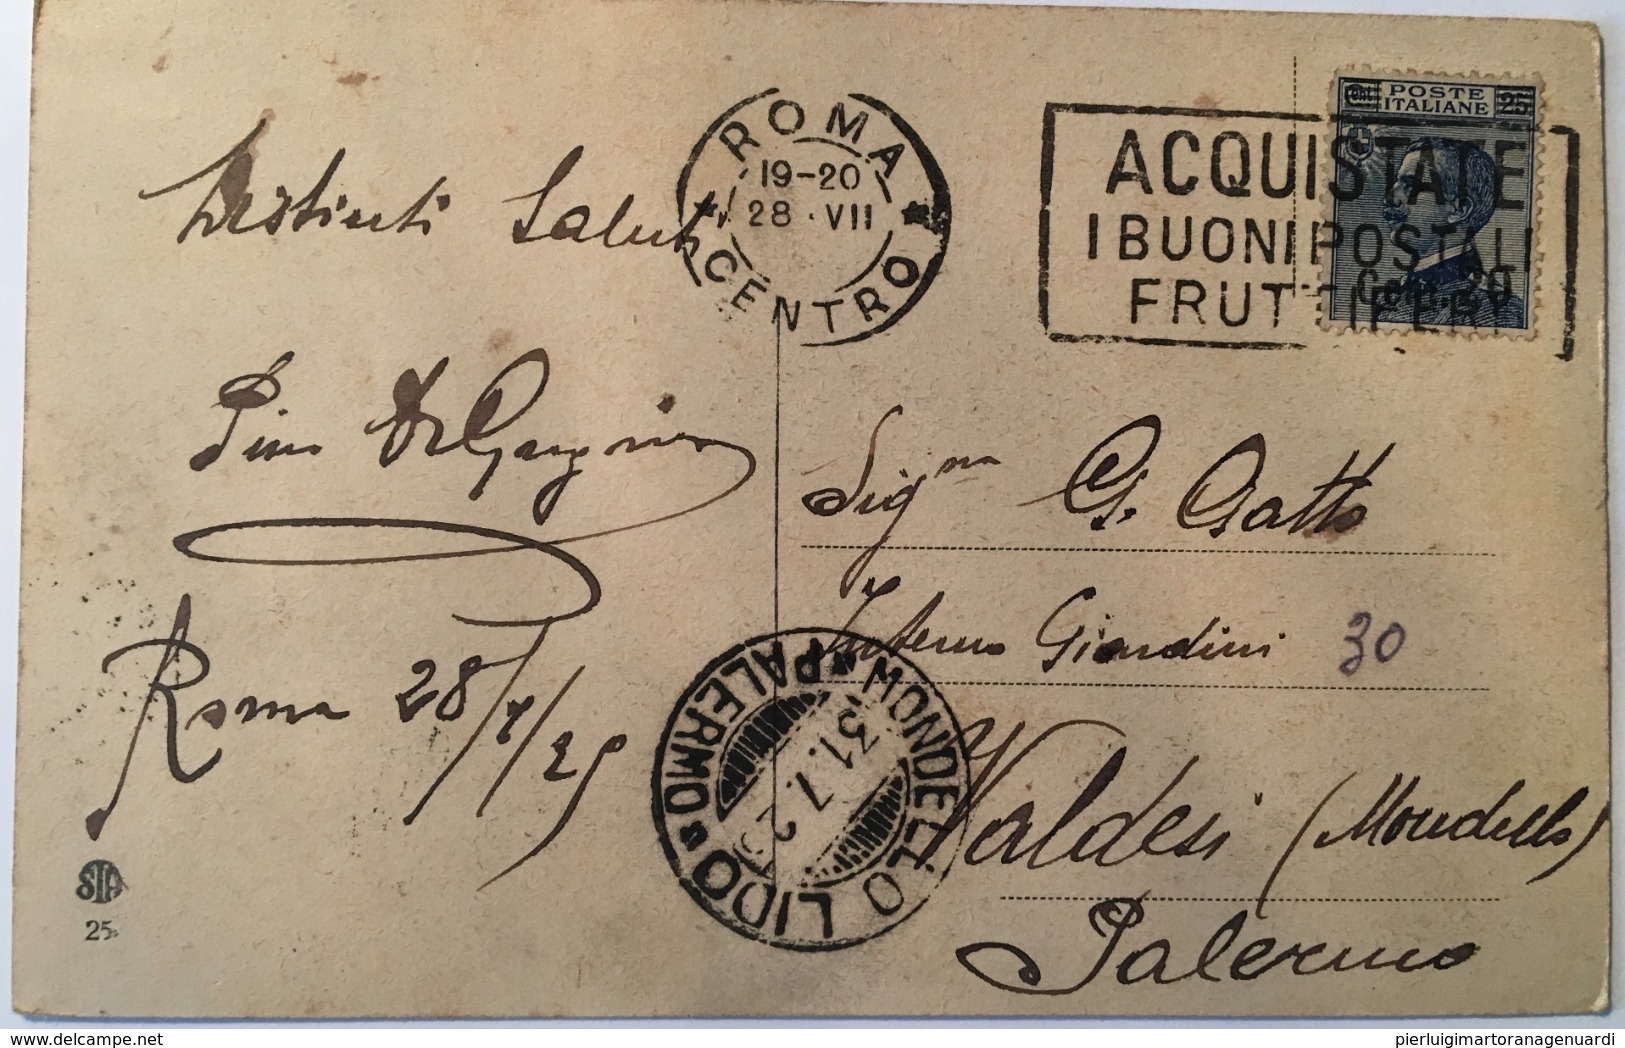 Distinti Saluti
Roma 28/7/25
STA
25
ROMA
19-20
28·VII
CENTRO
ACQUISTATE
I BUONI POSTALI
FRUTTIFERI
Cent. 25 POSTE ITALIANE 25
Cent. 20
Sig.na G. Gatto
Giardini 30
Valdesi (Mondello)
Palermo
MONDELLO LIDO
PALERMO
31.7.25
delcampe.net
pierluigimartoranagenuardi